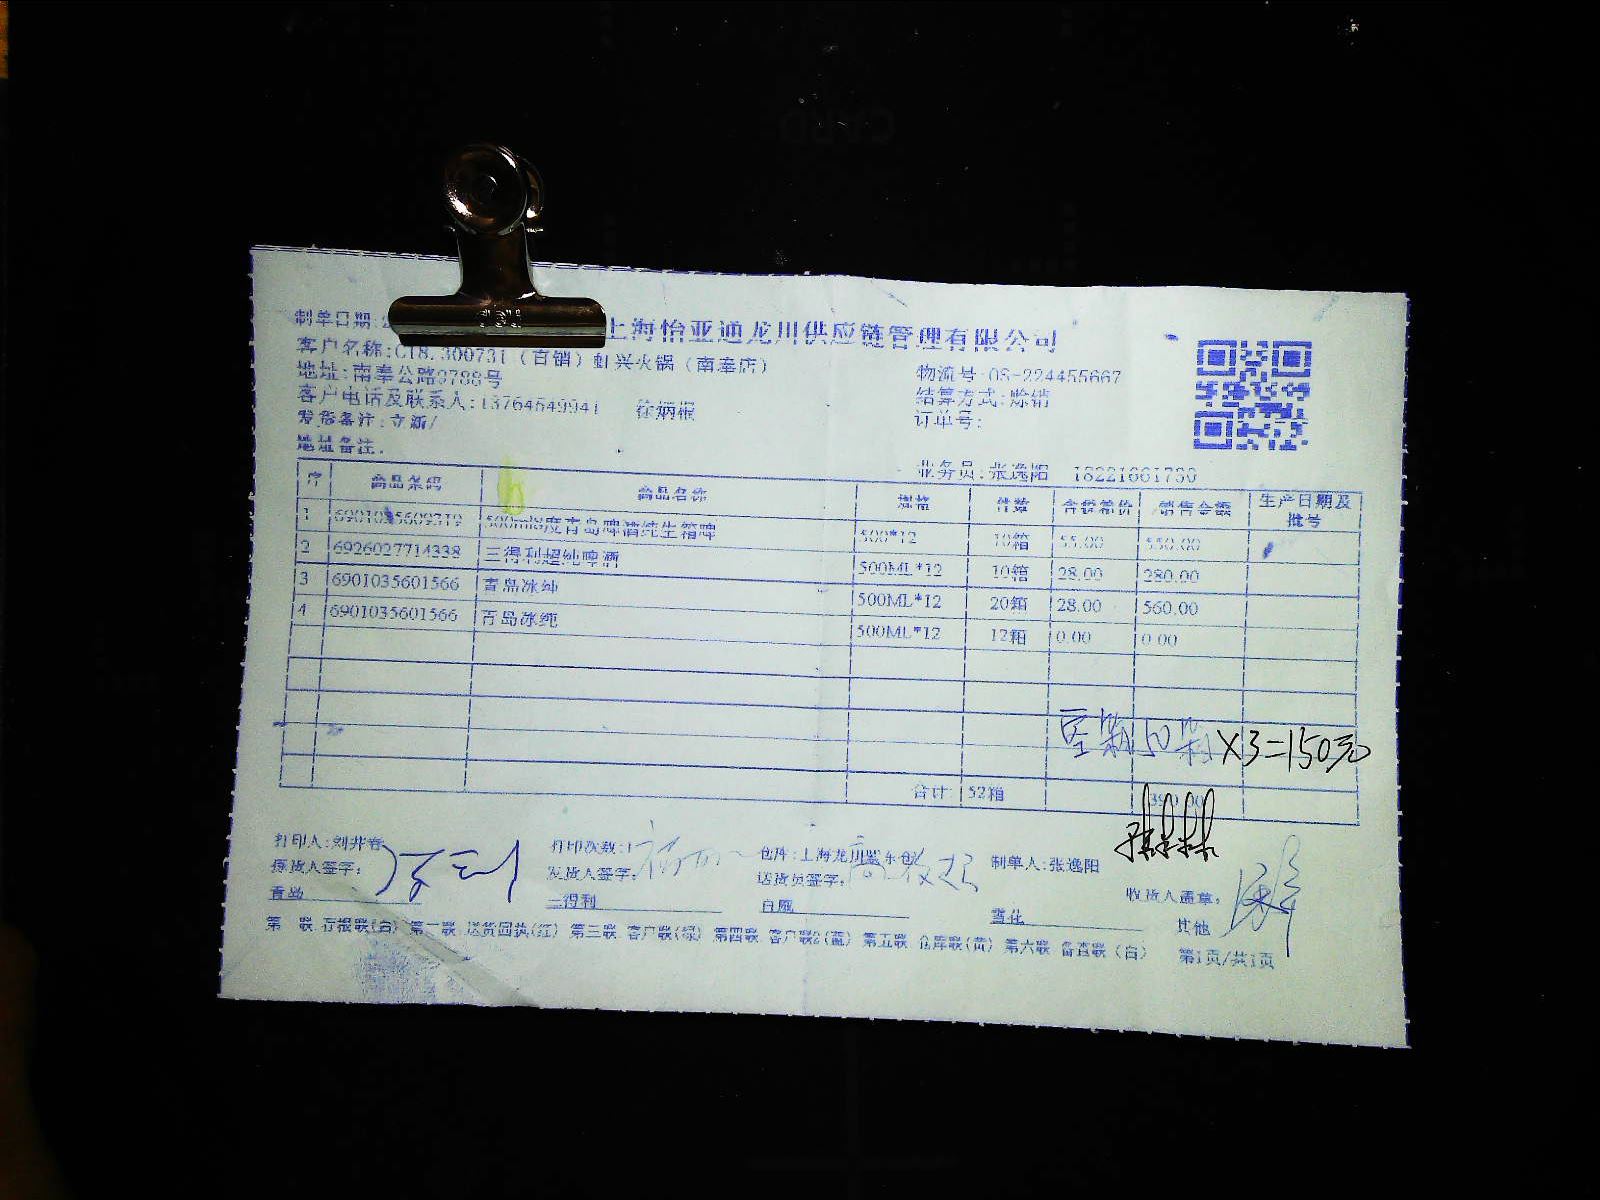 制单日期:
上海怡亚通龙川供应链管理有限公司
客户名称:C18.300731（直销）虾兴火锅（南奉店）
物流号:OS-224455667
地址:南奉公路9788号
结算方式:赊销
客户电话及联系人:13764549941
订单号:
发货备注:立新/
地址备注:
业务员:张逸阳 18221661730
序 商品条码 商品名称 规格 件数 含税单价 销售金额 生产日期及批号
1 青岛啤酒纯生箱啤 500*12 10箱 55.00 550.00
2 6926027714338 三得利超纯啤酒 500ML*12 10箱 28.00 280.00
3 6901035601566 青岛冰纯 500ML*12 20箱 28.00 560.00
4 6901035601566 青岛冰纯 500ML*12 12箱 0.00 0.00
空箱50箱X3=150元
合计: 52箱
打印人:刘井春 打印次数:1 仓库:上海龙川 制单人:张逸阳
拣货人签字: 发货人签字: 送货员签字: 收货人盖章:
青岛 三得利 百威 雪花 其他
第一联 存根联(白) 第二联 送货回执(红) 第三联 客户联(绿) 第四联 客户联2(蓝) 第五联 仓库联(黄) 第六联 备查联(白) 第1页/共1页